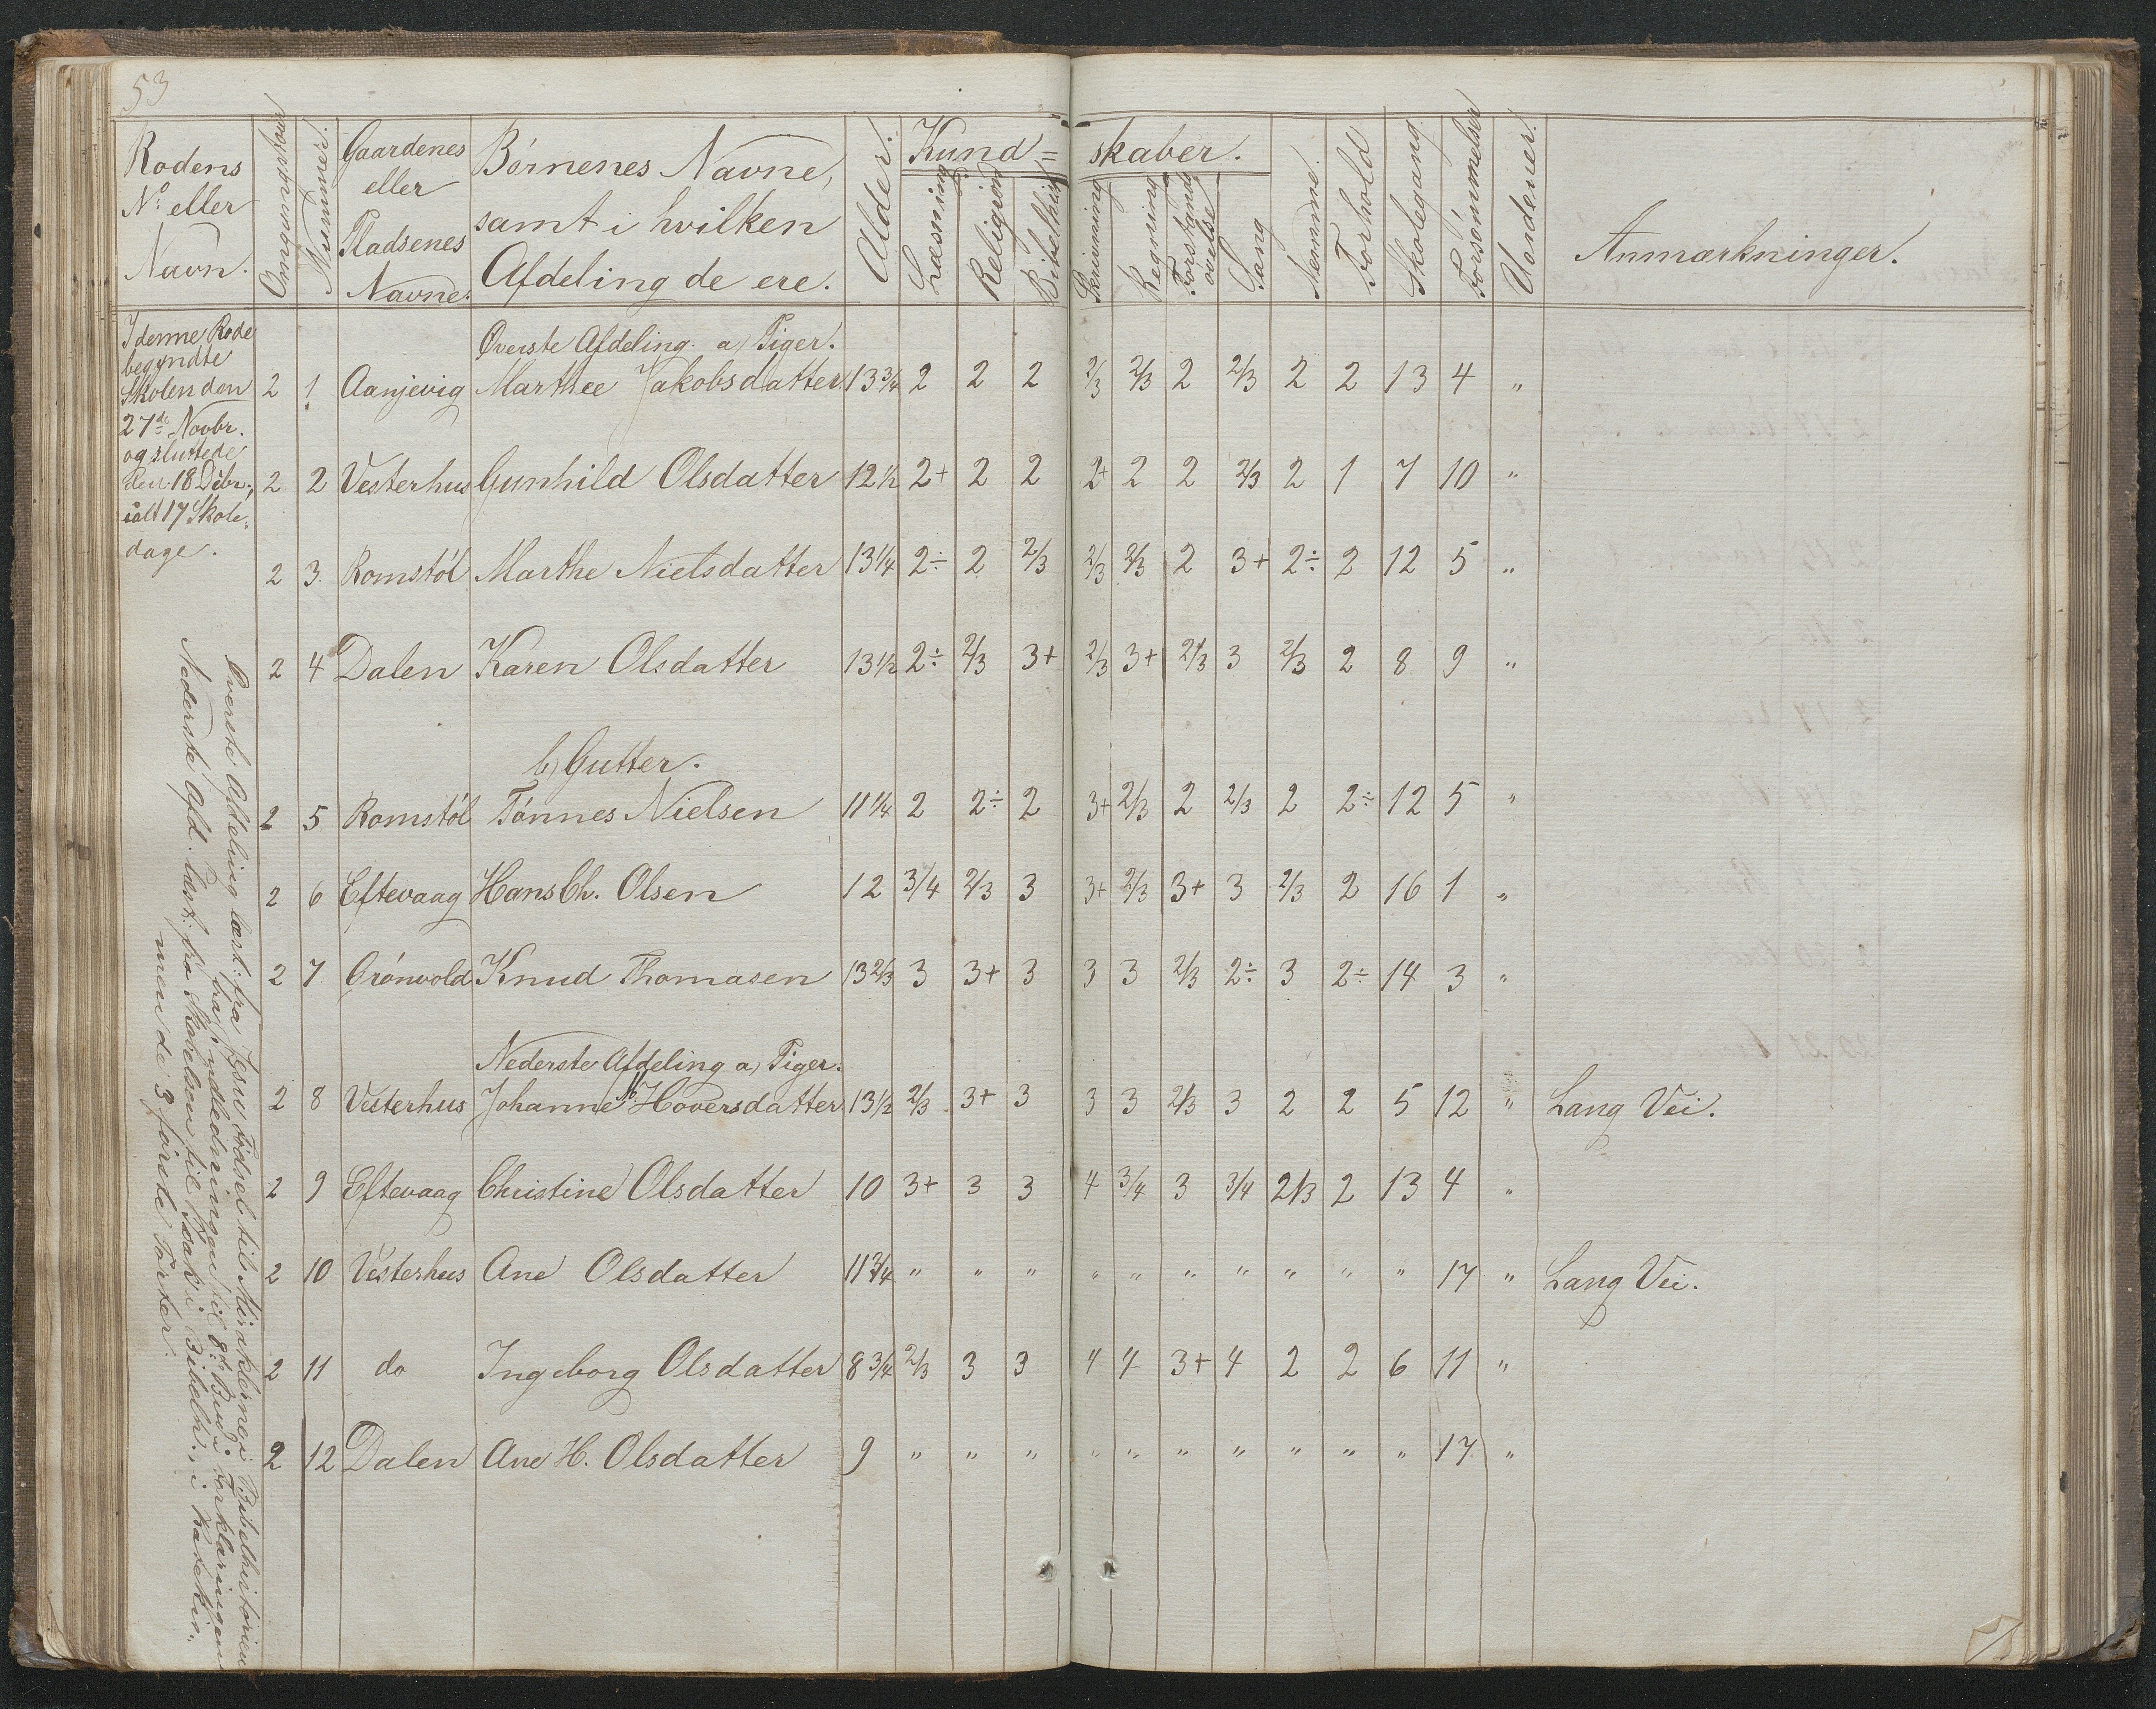 53
Rodens No eller Navn. Omgangsskolens Nummer. Gaardenes eller Pladsenes Navne. Børnenes Navne, samt i hvilken Afdeling de ere. Alder. Kund= skaber. Læsning Religion Bibelhist. Skrivning Regning Forstands øvelse Sang Nemme. Forhold Skolegang Forsømmelser Uordener. Anmærkninger.
I denne Rode
begyndte
Skolen den
27de Novbr.
og sluttede
den 18 Debr.,
ialt 17 Skole-
dage.
Øverste Afdeling. a, Piger.
2 1 Aanjevig Marthee Jakobsdatter 13 3/4 2 2 2 2/3 2/3 2 2/3 2 2 13 4 "
2 2 Vesterhus Gunhild Olsdatter 12 1/2 2+ 2 2 2+ 2 2 2/3 2 1 7 10 "
2 3 Romstøl Marthe Nielsdatter 13 1/4 2÷ 2 2/3 2/3 2/3 2 3+ 2÷ 2 12 5 "
2 4 Dalen Karen Olsdatter 13 1/2 2÷ 2/3 3+ 2/3 3+ 2/3 3 2/3 2 8 9 "
b, Gutter.
2 5 Romstøl Tønnes Nielsen 11 1/4 2 2÷ 2 3+ 2/3 2 2/3 2 2÷ 12 5 "
2 6 Eftevaag Hans Ch. Olsen 12 3/4 2/3 3 3+ 2/3 3+ 3 2/3 2 16 1 "
2 7 Grónvold Knud Thomasen 13 2/3 3 3+ 3 3 3 2/3 2÷ 3 2÷ 14 3 "
Nederste Afdeling a, Piger.
2 8 Vesterhus Johanne M. Hoversdatter 13 1/2 2/3 3+ 3 3 3 2/3 3 2 2 5 12 " Lang Vei.
2 9 Eftevaag Christine Olsdatter 10 3+ 3 3 4 3/4 3 3/4 2/3 2 13 4 "
2 10 Vesterhus Ane Olsdatter 11 3/4 " " " " " " " " " " 17 " Lang Vei.
2 11 do Ingeborg Olsdatter 8 3/4 2/3 3 3 4 4 3+ 4 2 2 6 11 "
2 12 Dalen Ane H. Olsdatter 9 " " " " " " " " " " 17 "
Øverste Afdeling læst: fra Jesu Fødsel til Miraklerne i Bibelhistorien
fra Indledningen til 8de Bud i Forklaringen
Nederste Afd. læst: fra Skabelsen til Isaak i Bibelh., i Katekis.
men de 3 første Parter.